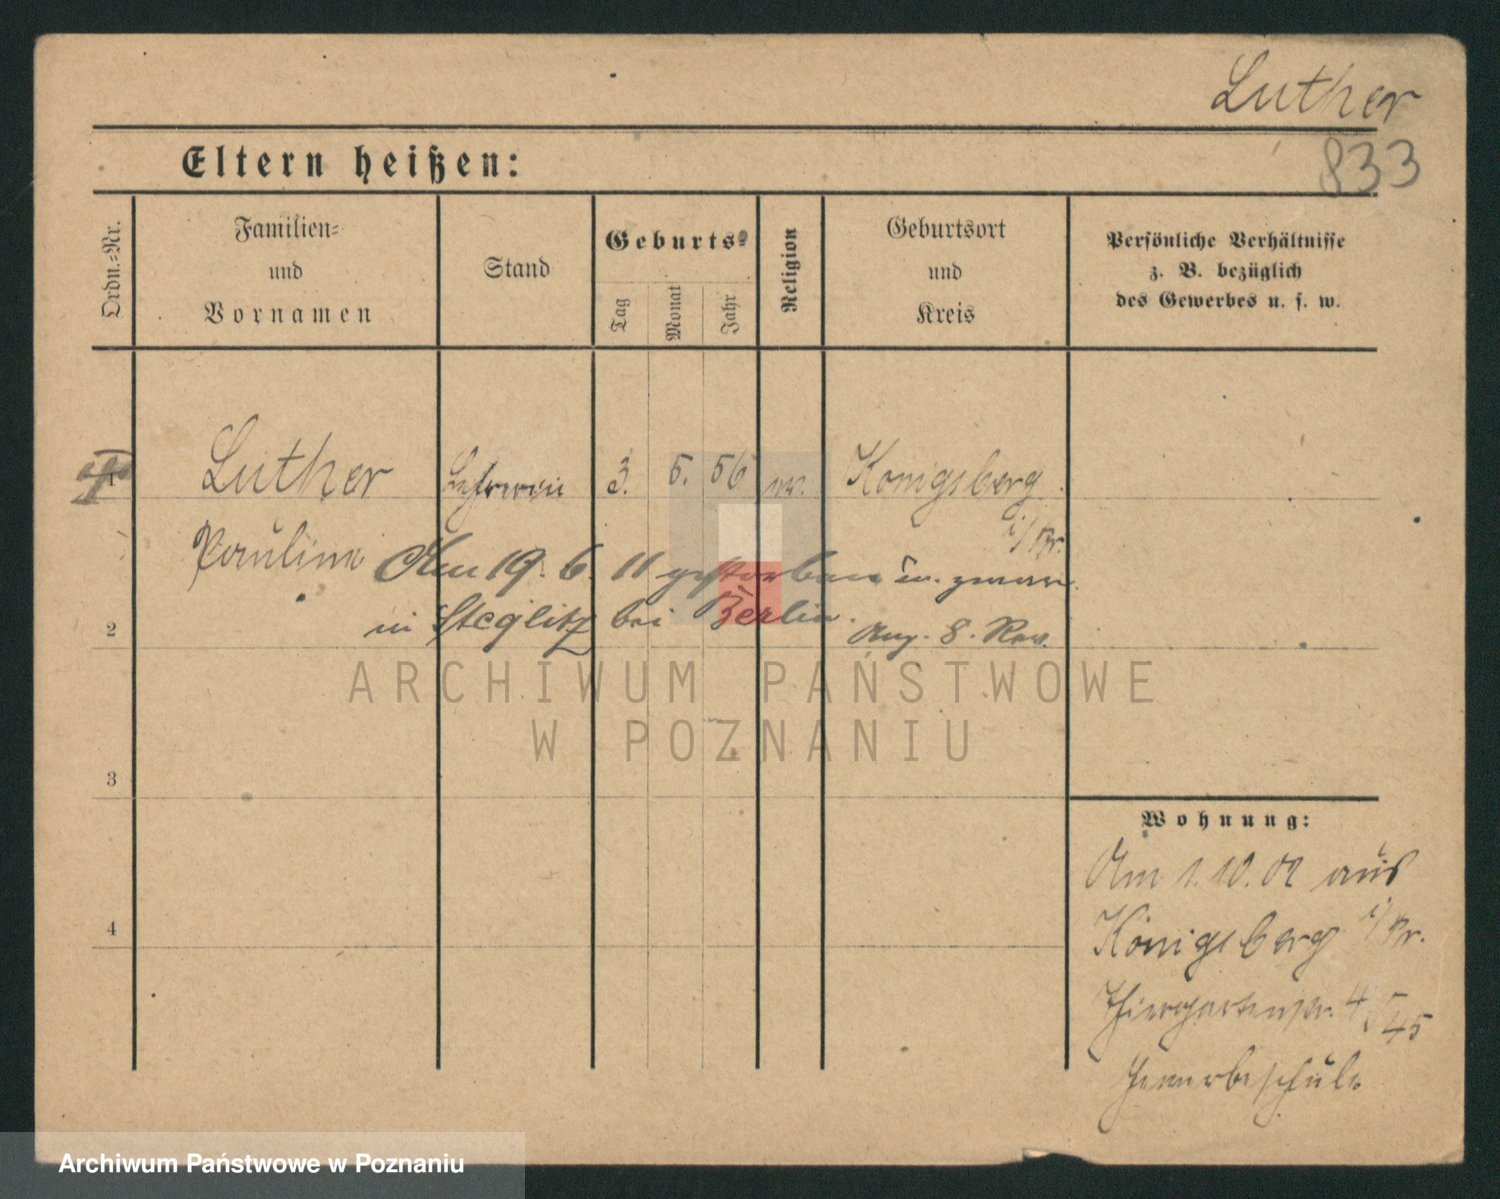 Luther
833
Eltern heißen:
Ordn.-Nr.
Familien-
und
Vornamen
Stand
Geburts-
Tag
Monat
Jahr
Religion
Geburtsort
und
Kreis
Persönliche Verhältnisse
z. B. bezüglich
des Gewerbes u. s. w.
1 Luther Lehrerin 3. 5. 56 ev. Königsberg
Pauline i/Pr.
Am 19. 6. 11 gestorben u. zwar
2 in Steglitz bei Berlin. Anz. 8. Rev.
ARCHIWUM PAŃSTWOWE
W POZNANIU
3
Wohnung:
Am 1. 10. 02 aus
4 Königsberg i/Pr.
Thiergartenstr. 4
45
Gewerbeschule
Archiwum Państwowe w Poznaniu